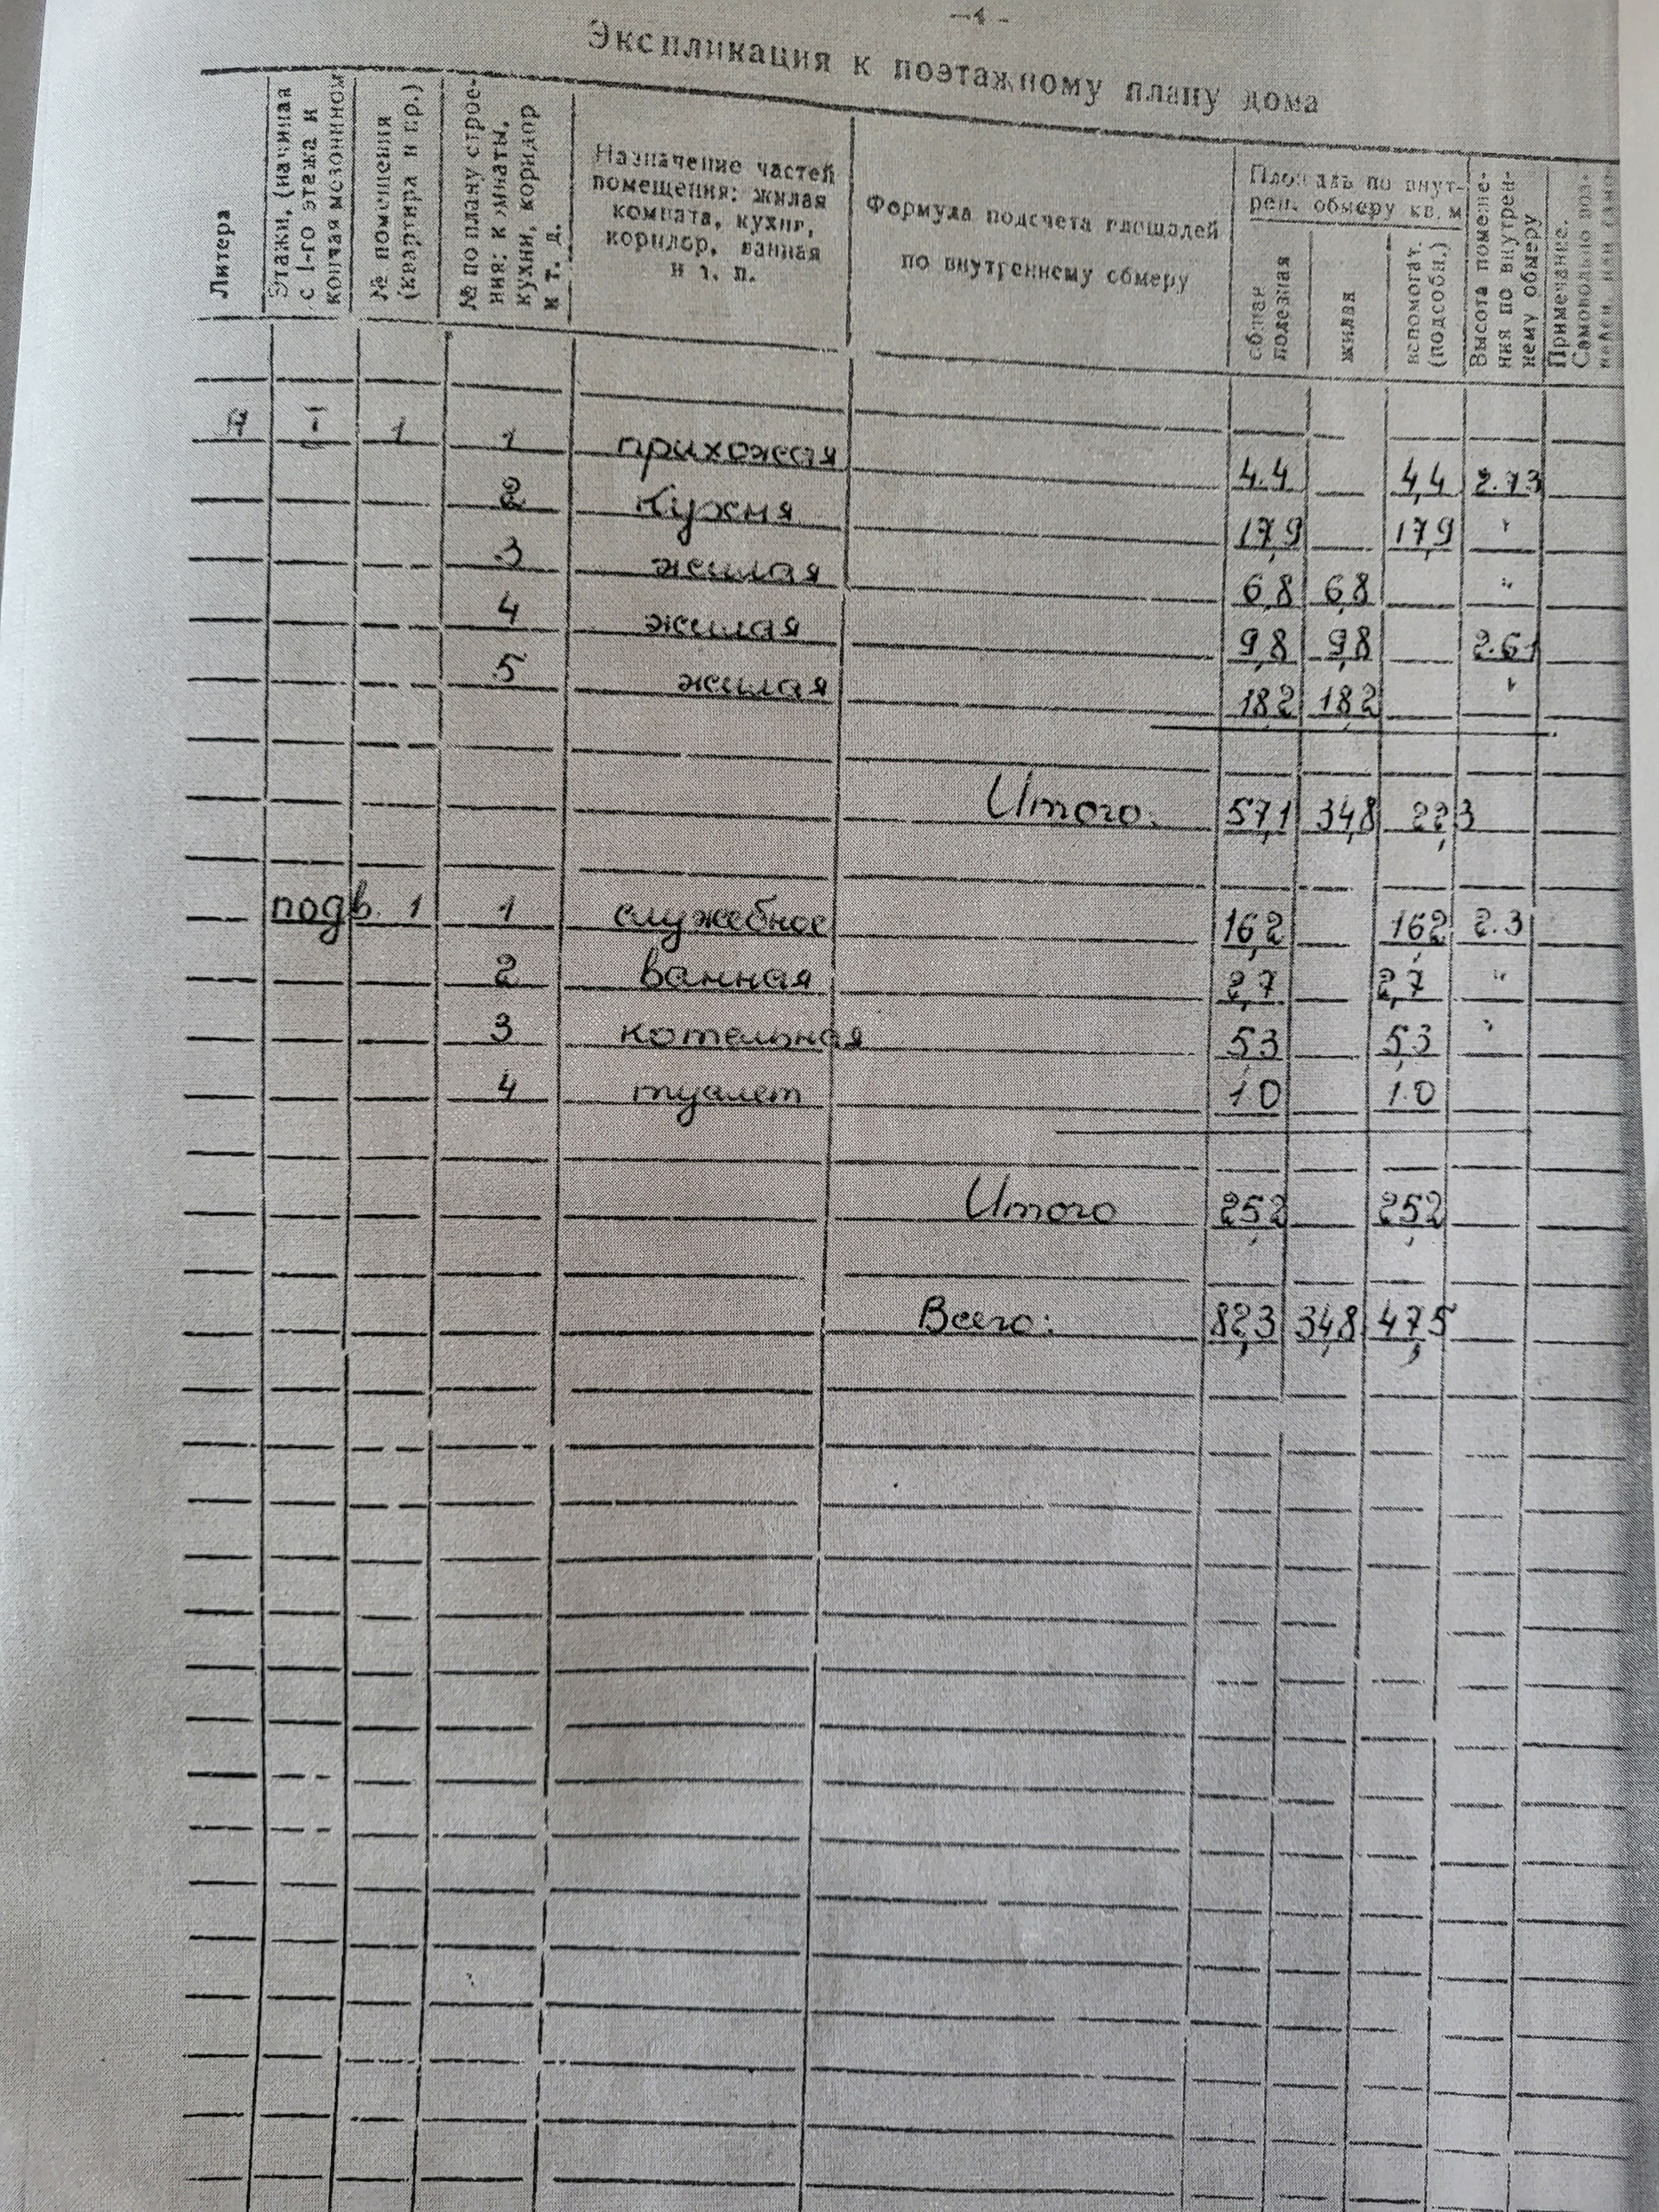 — 4 -
Экспликация к поэтажному плану дома
Литера
Этажи, (начиная
с 1-го этажа и
кончая мезонином
№ помещения
(квартира и пр.)
№ по плану строе-
ния: комнаты,
кухни, коридор
и т. д.
Назначение частей
помещения: жилая
комната, кухня,
коридор, ванная
и т. п.
Формула подсчета площадей
по внутреннему обмеру
Площадь по внут-
рен. обмеру кв. м
общая
полезная
жилая
вспомогат.
(подсобн.)
Высота помеще-
ния по внутрен-
нему обмеру
Примечание.
Самовольно воз-
1 1 прихожая 4.4 4,4 2.73
2 Кухня 17,9 17,9 "
3 жилая 6,8 6,8 "
4 жилая 9,8 9,8 2.61
5 жилая 18,2 18,2 "
Итого: 57,1 34,8 22,3
подв. 1 1 служебное 16,2 16,2 2.3
2 ванная 2,7 2,7 "
3 котельная 5,3 5,3 "
4 туалет 1.0 1.0
Итого 25,2 25,2
Всего: 82,3 34,8 47,5